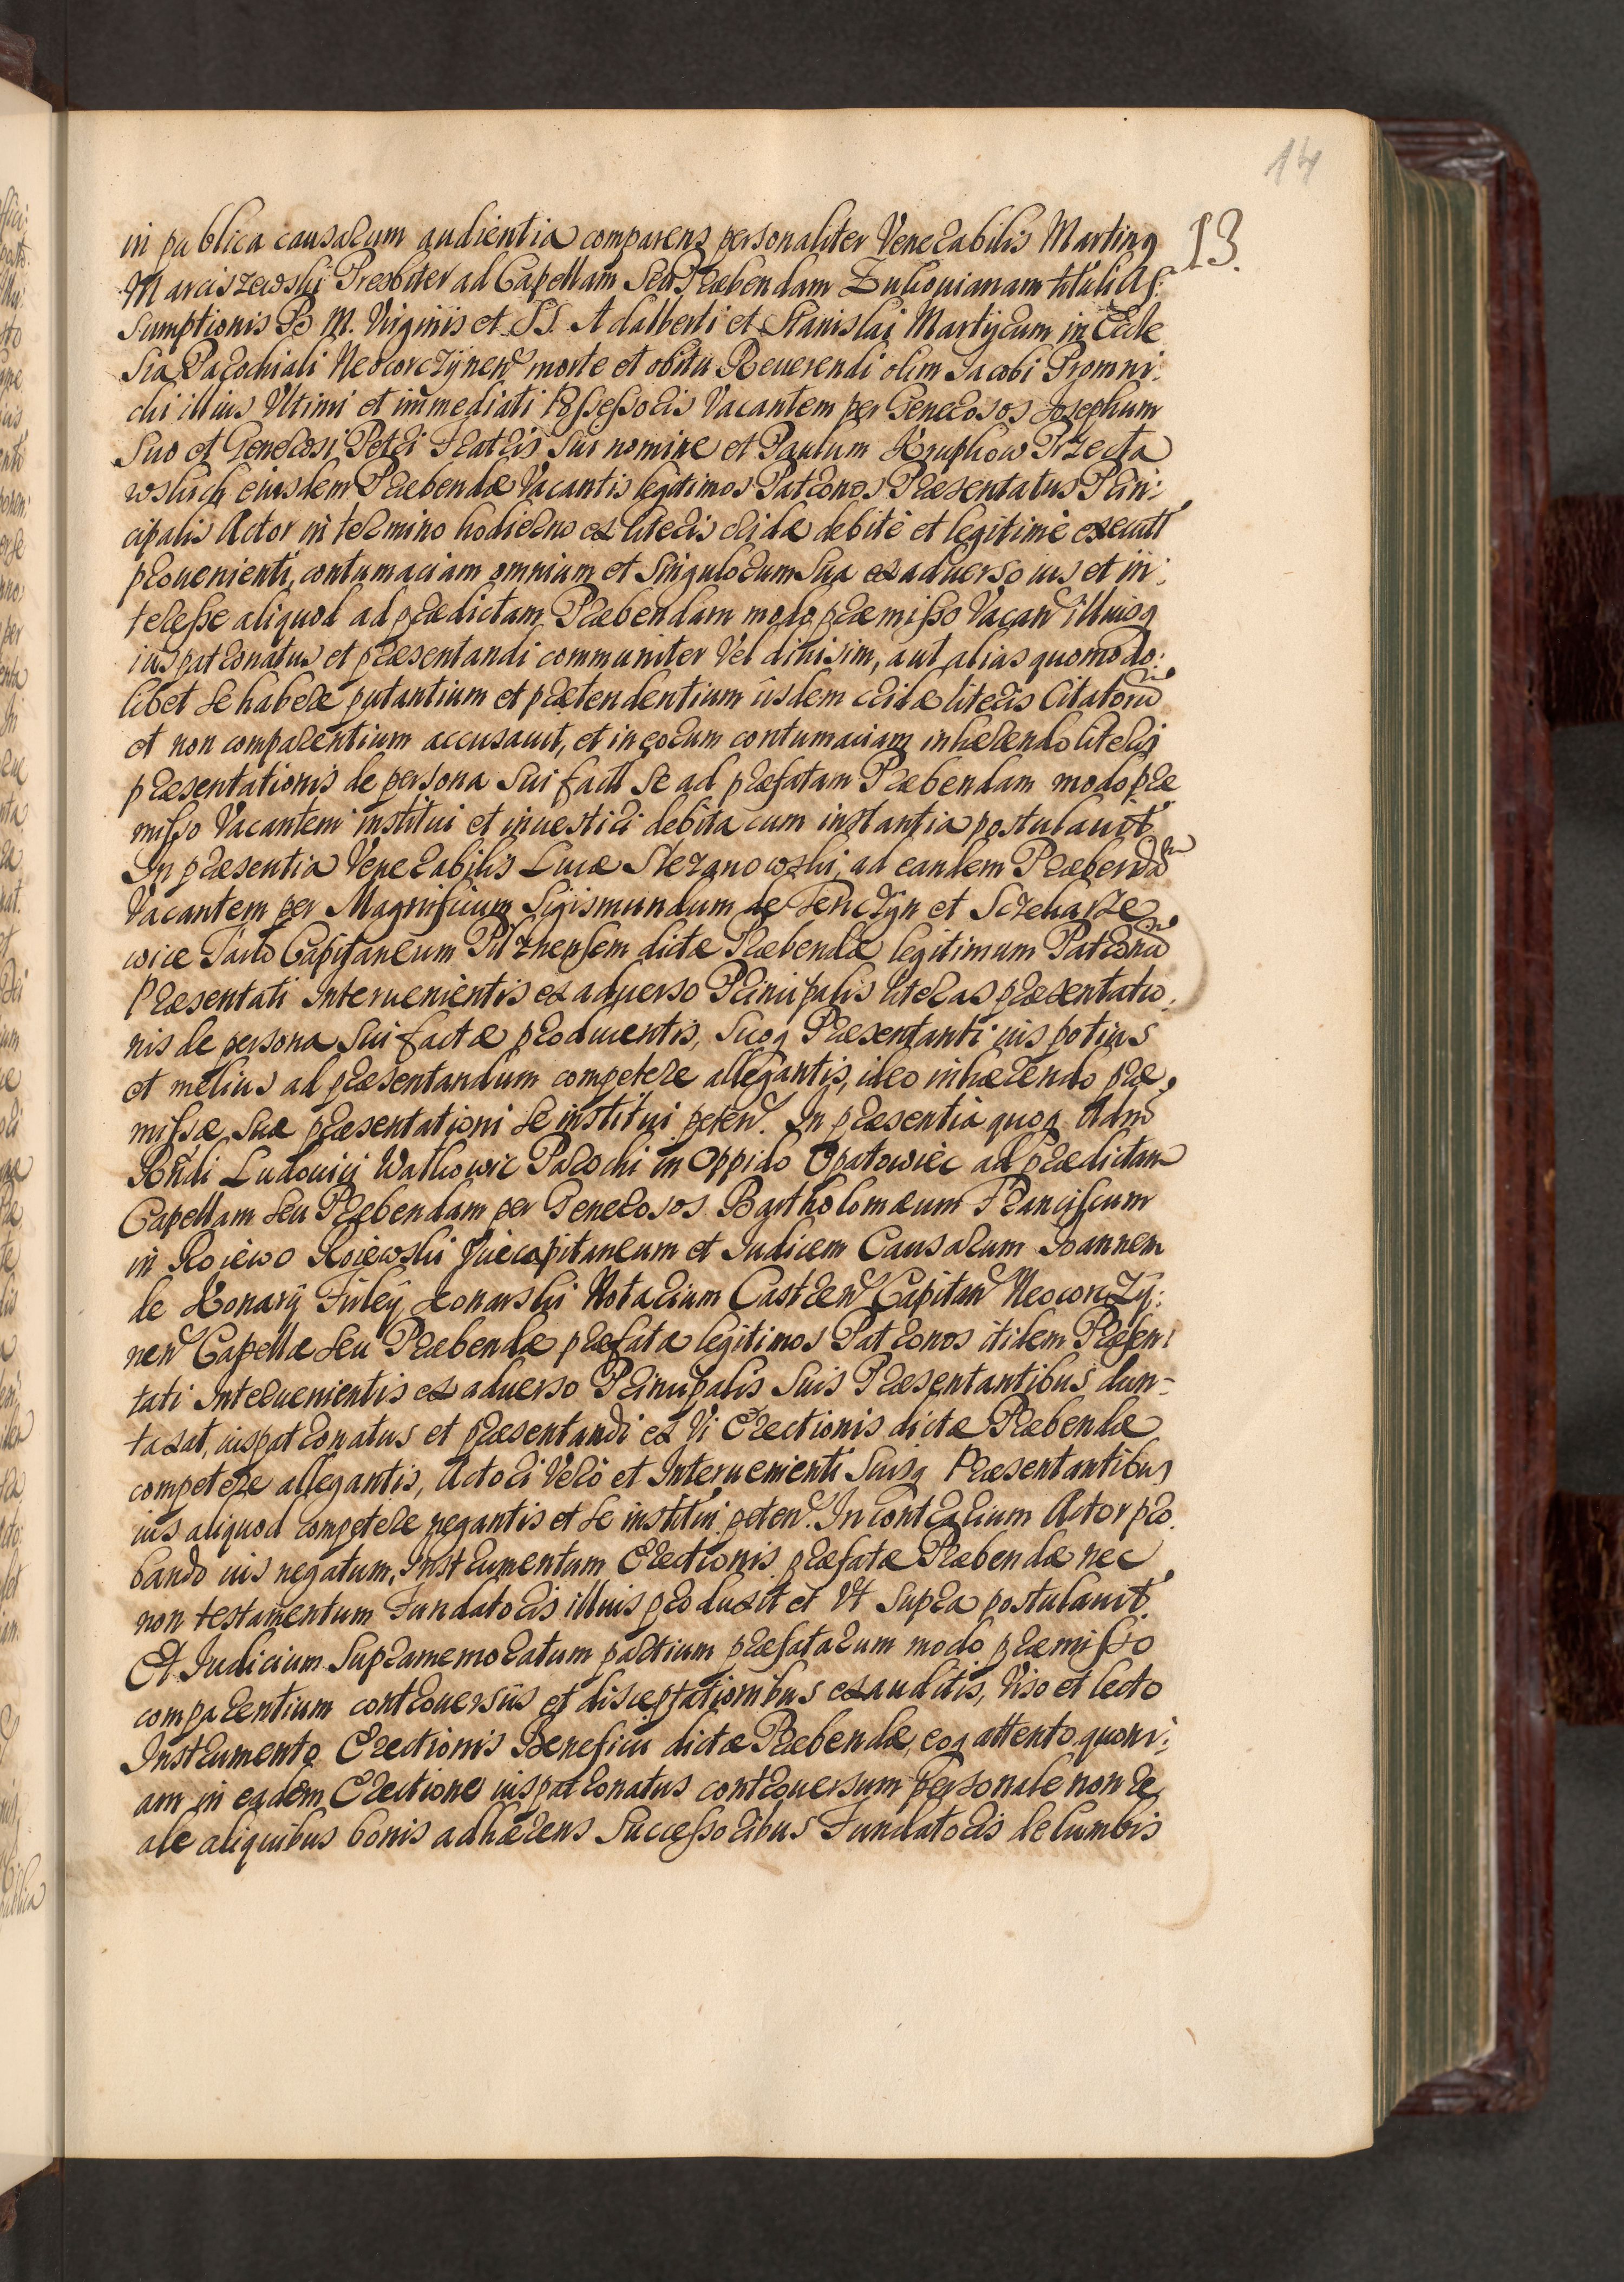 14
13.
in publica causarum audientia comparens personaliter Venerabilis Martinq
Marciszewski Presbiter ad Capellam Seu Præbendam Zukovianam tituli As:
sumptionis B M. Virginis et SS. Adalberti et Stanislai Martyrum in Eccle
sia Parochiali Neocorczÿnen morte et obitu Reuerendi olim Jacobi Promni:
cki illius Vltimi et im̃mediati Possessoris Vacantem per Generosos Josephum
Suo et Generosi Petri Fratris Sui nomine et Paulum Krupkow Przecła
wskich eiusdem Præbendæ Vacantis legitimos Patronos Præsentatus Prin:
cipalis Actor in termino hodierno ex literis cridæ debitè et legitimè execut
prouenienti, contumaciam omnium et Singulorum Sua ex aduerso ius et in:
teresse aliquod ad prædictam Præbendam modo præmisso Vacan illiusq
iuspatronatus et præsentandi communiter Vel diuisim, aut alias quomodo:
libet se habere putantium et prætendentium iisdem cridæ literis Citatoru
et non comparentium accusauit, et in eorum contumaciam inhærendo literis
præsentationis de persona Sui fact Se ad præfatam Præbendam modo præ
misso Vacantem institui et inuestiri debita cum instantia postulauit
In præsentia Venerabilis Lucæ Skrzanowski, ad eandem Præbenda
Vacantem per Magnificum Sigismundum de Tenczÿn et Strzelarze
wice Tarło Capitaneum Pilznensem dictæ Præbendæ legitimum Patronu
Præsentati Interuenientis ex aduerso Principalis literas præsentatio:
nis de persona Sui factæ producentis, Suoq Præsentanti ius potius
et melius ad præsentandum competere allegantis, ideo inhærendo præ
missæ Suæ præsentationi Se institui peten. In præsentia quoq Adm
Rndi Ludouici Watkowic Parochi in Oppido Opatowiec ad prædictam
Capellam Seu Præbendam per Generosos Bartholomæum Franciscum
in Rojewo Rojewski Vicecapitaneum et Judicem Causarum Joannem
de Konarÿ Firleÿ Konarski Notarium Castren Capitan Neocorczÿ:
nen Capellæ Seu Præbendæ præfatæ legitimos Patronos itidem Præsen:
tati Interuenientis ex aduerso Principalis Suis Præsentantibus dun-
taxat, iuspatronatus et præsentandi ex Vi Erectionis dictæ Præbendæ
competere allegantis, Actori Verò et Interuenienti Suisq Præsentantibus
ius aliquod competere negantis et Se institui peten. In contrarium Actor pro
bando ius negatum, Instrumentum Erectionis præfatæ Præbendæ nec
non testamentum Fundatoris illius produxit et Vt Supra postulauit
Et Judicium Supramemoratum partium præfatarum modo præmisso
comparentium controuersiis et disceptationibus exauditis, Viso et lecto
Instrumento Erectionis Beneficii dictæ Præbendæ, eoq attento quoni:
am in eadem Erectione iuspatronatus controuersum personale non re
ale aliquibus bonis adhærens Successoribus Fundatoris de lumbis